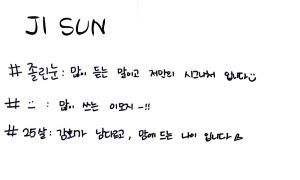 JI SUN
# 졸린눈 : 많이 듣는 말이고 저만의 시그니처 입니다☺
# :) : 많이 쓰는 이모지 -!!
# 25살 : 감회가 남다르고, 맘에 드는 나이 입니다